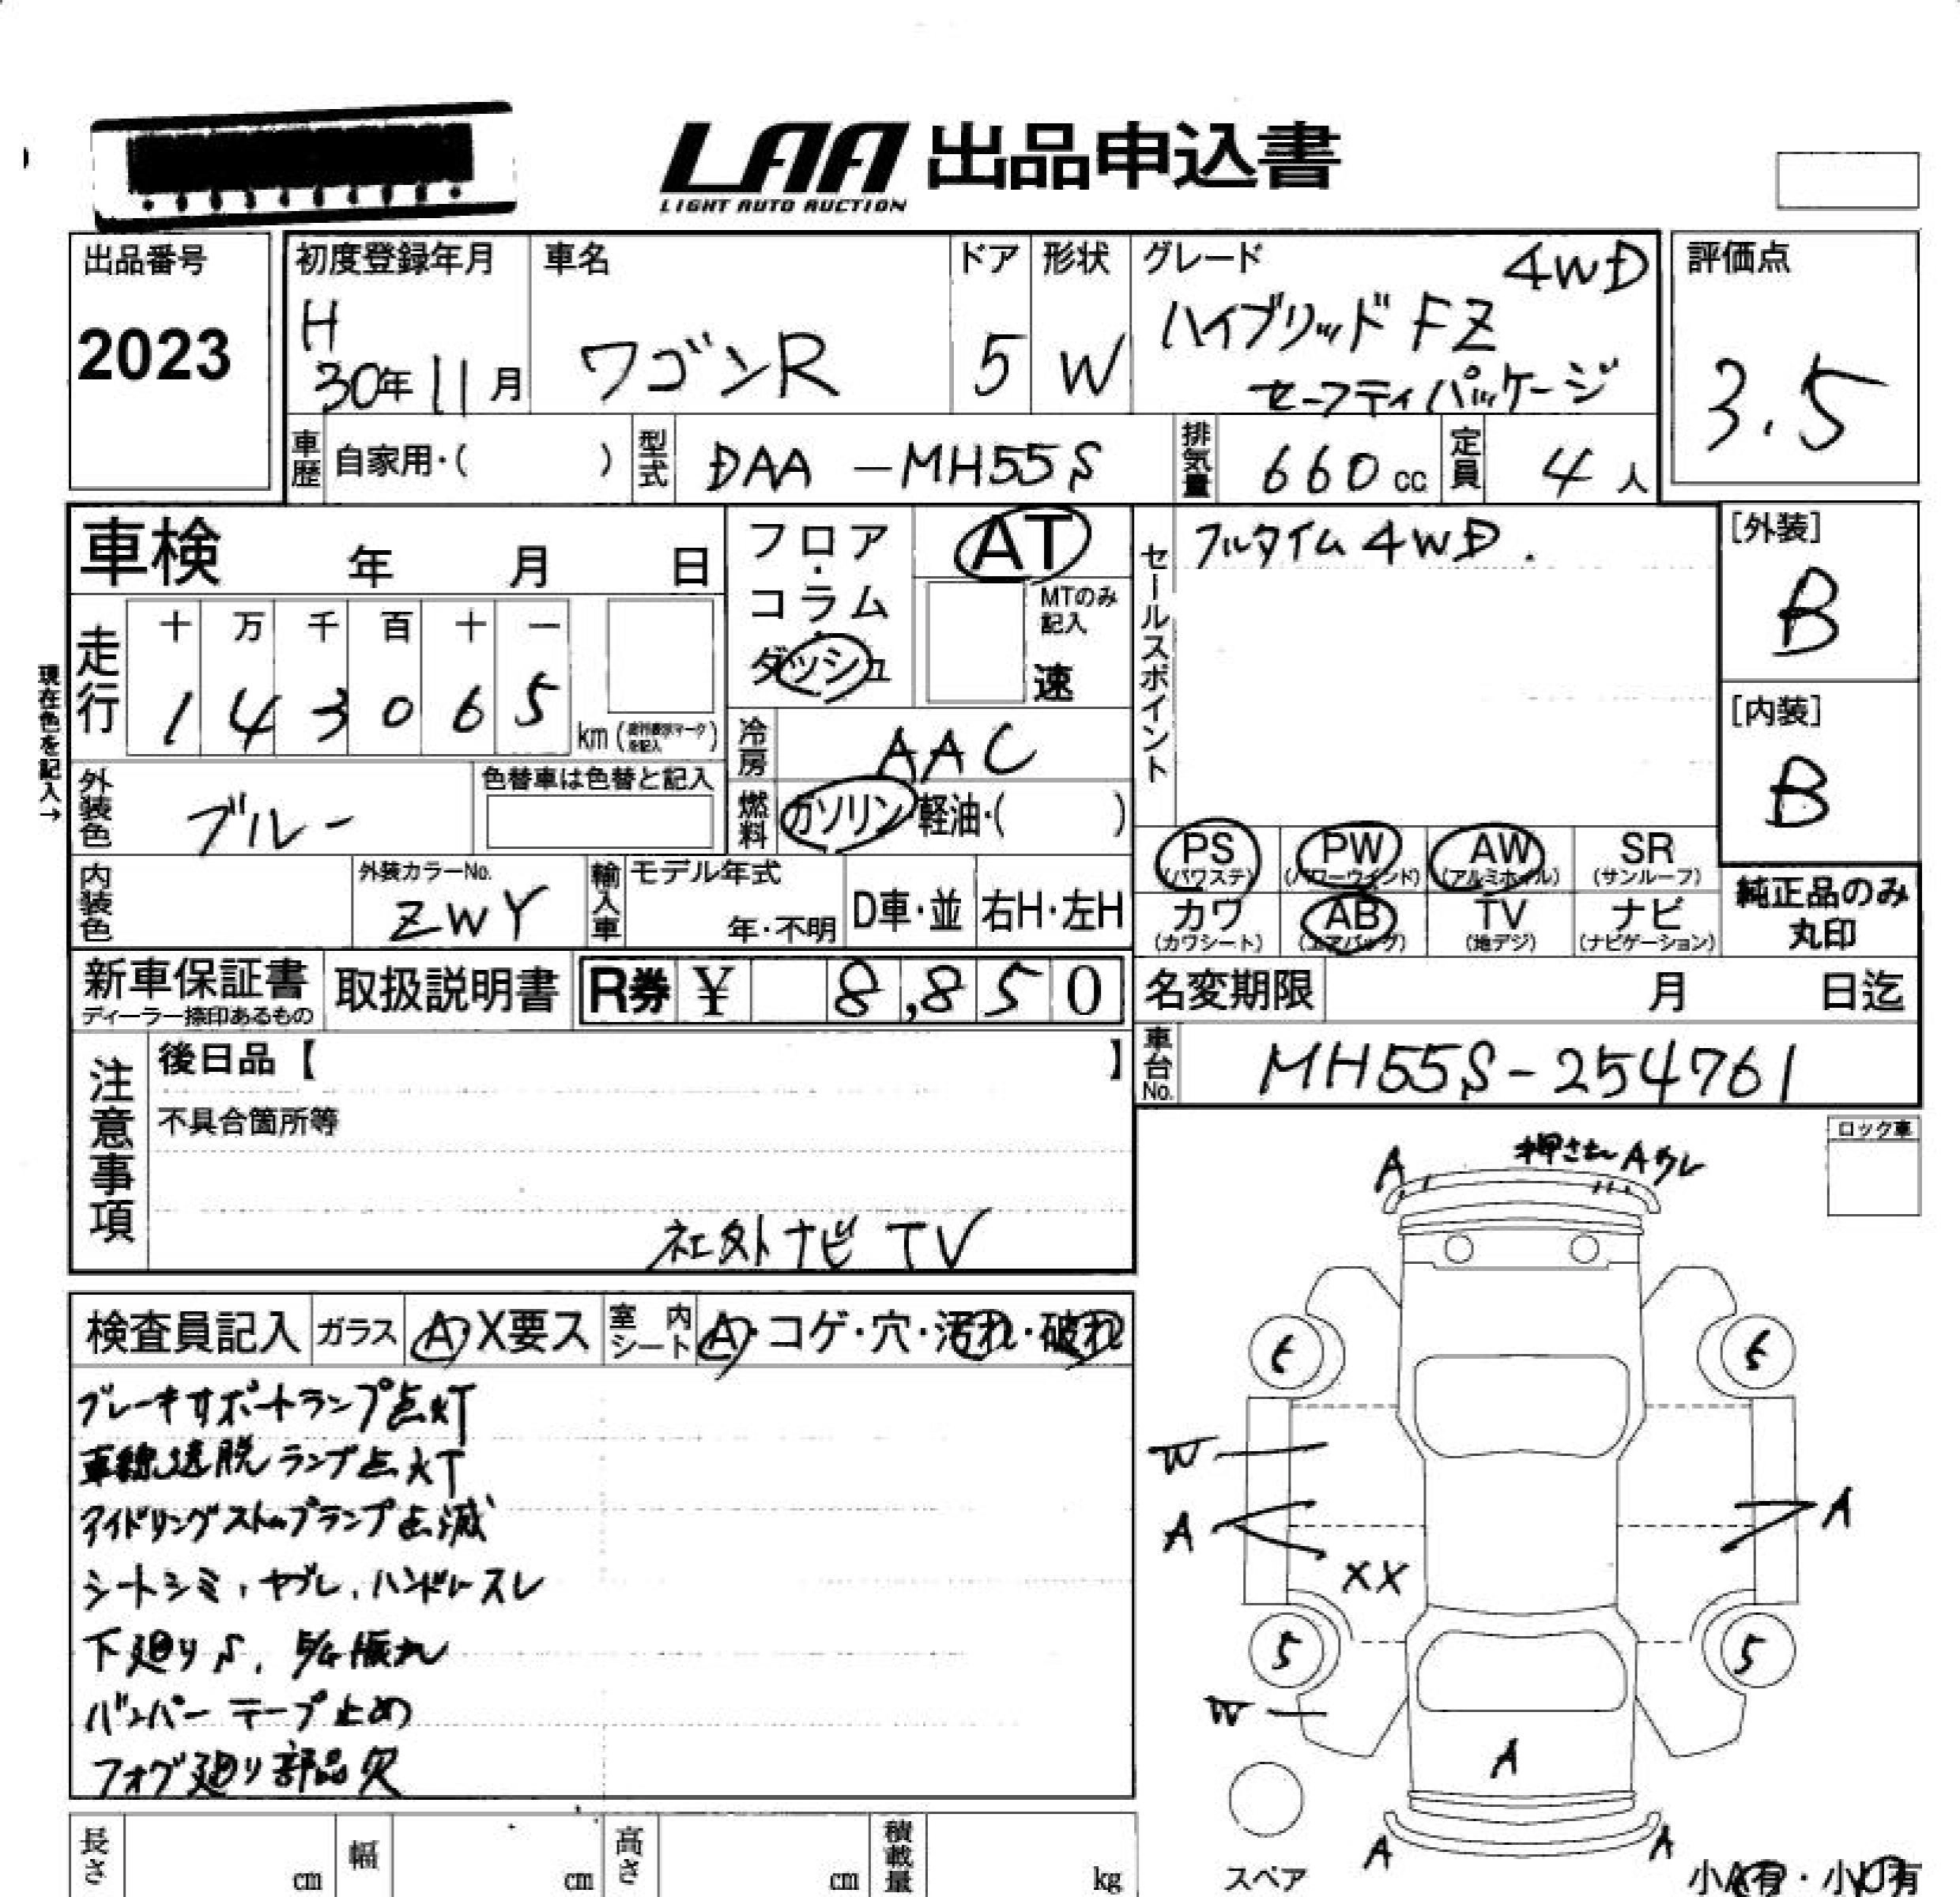 LAA 出品申込書
LIGHT AUTO AUCTION
出品番号
2023
初度登録年月
H
30年11月
車名
ワゴンR
ドア
5
形状
W
グレード
4WD
ハイブリッド FZ
セーフティパッケージ
評価点
3.5
車歴
自家用・( )
型式
DAA-MH55S
排気量
660cc
定員
4人
車検 年 月 日
フロア・コラム・ダッシュ
AT
MTのみ記入
速
セールスポイント
フルタイム4WD.
[外装]
B
[内装]
B
走行
十 万 千 百 十 一
1 4 3 0 6 5
km
現在色を記入→
冷房
AAC
外装色
ブルー
色替車は色替と記入
燃料
ガソリン 軽油・( )
PS
(パワステ)
PW
(パワーウインド)
AW
(アルミホイル)
SR
(サンルーフ)
カワ
(カワシート)
AB
(エアバッグ)
TV
(地デジ)
ナビ
(ナビゲーション)
純正品のみ
丸印
内装色
外装カラーNo.
ZWY
輸入車
モデル年式
年・不明
D車・並
右H・左H
新車保証書
ディーラー捺印あるもの
取扱説明書
R券 ¥ 8,850
名変期限 月 日迄
車台No.
MH55S-254761
注意事項
後日品【 】
不具合箇所等
社外ナビ TV
ロック車
検査員記入
ガラス
A・X要ス
室内シート
A・コゲ・穴・汚れ・破れ
ブレーキサポートランプ点灯
車線逸脱ランプ点灯
アイドリングストップランプ点滅
シートシミ、ヤブレ、ハンドルスレ
下廻りS、
バンパーテープ止め
フォグ廻り部品欠
A
Aワレ
W
A
A
XX
5
5
W
A
A
A
スペア
長さ
cm
幅
cm
高さ
cm
積載量
kg
小A有・小U有